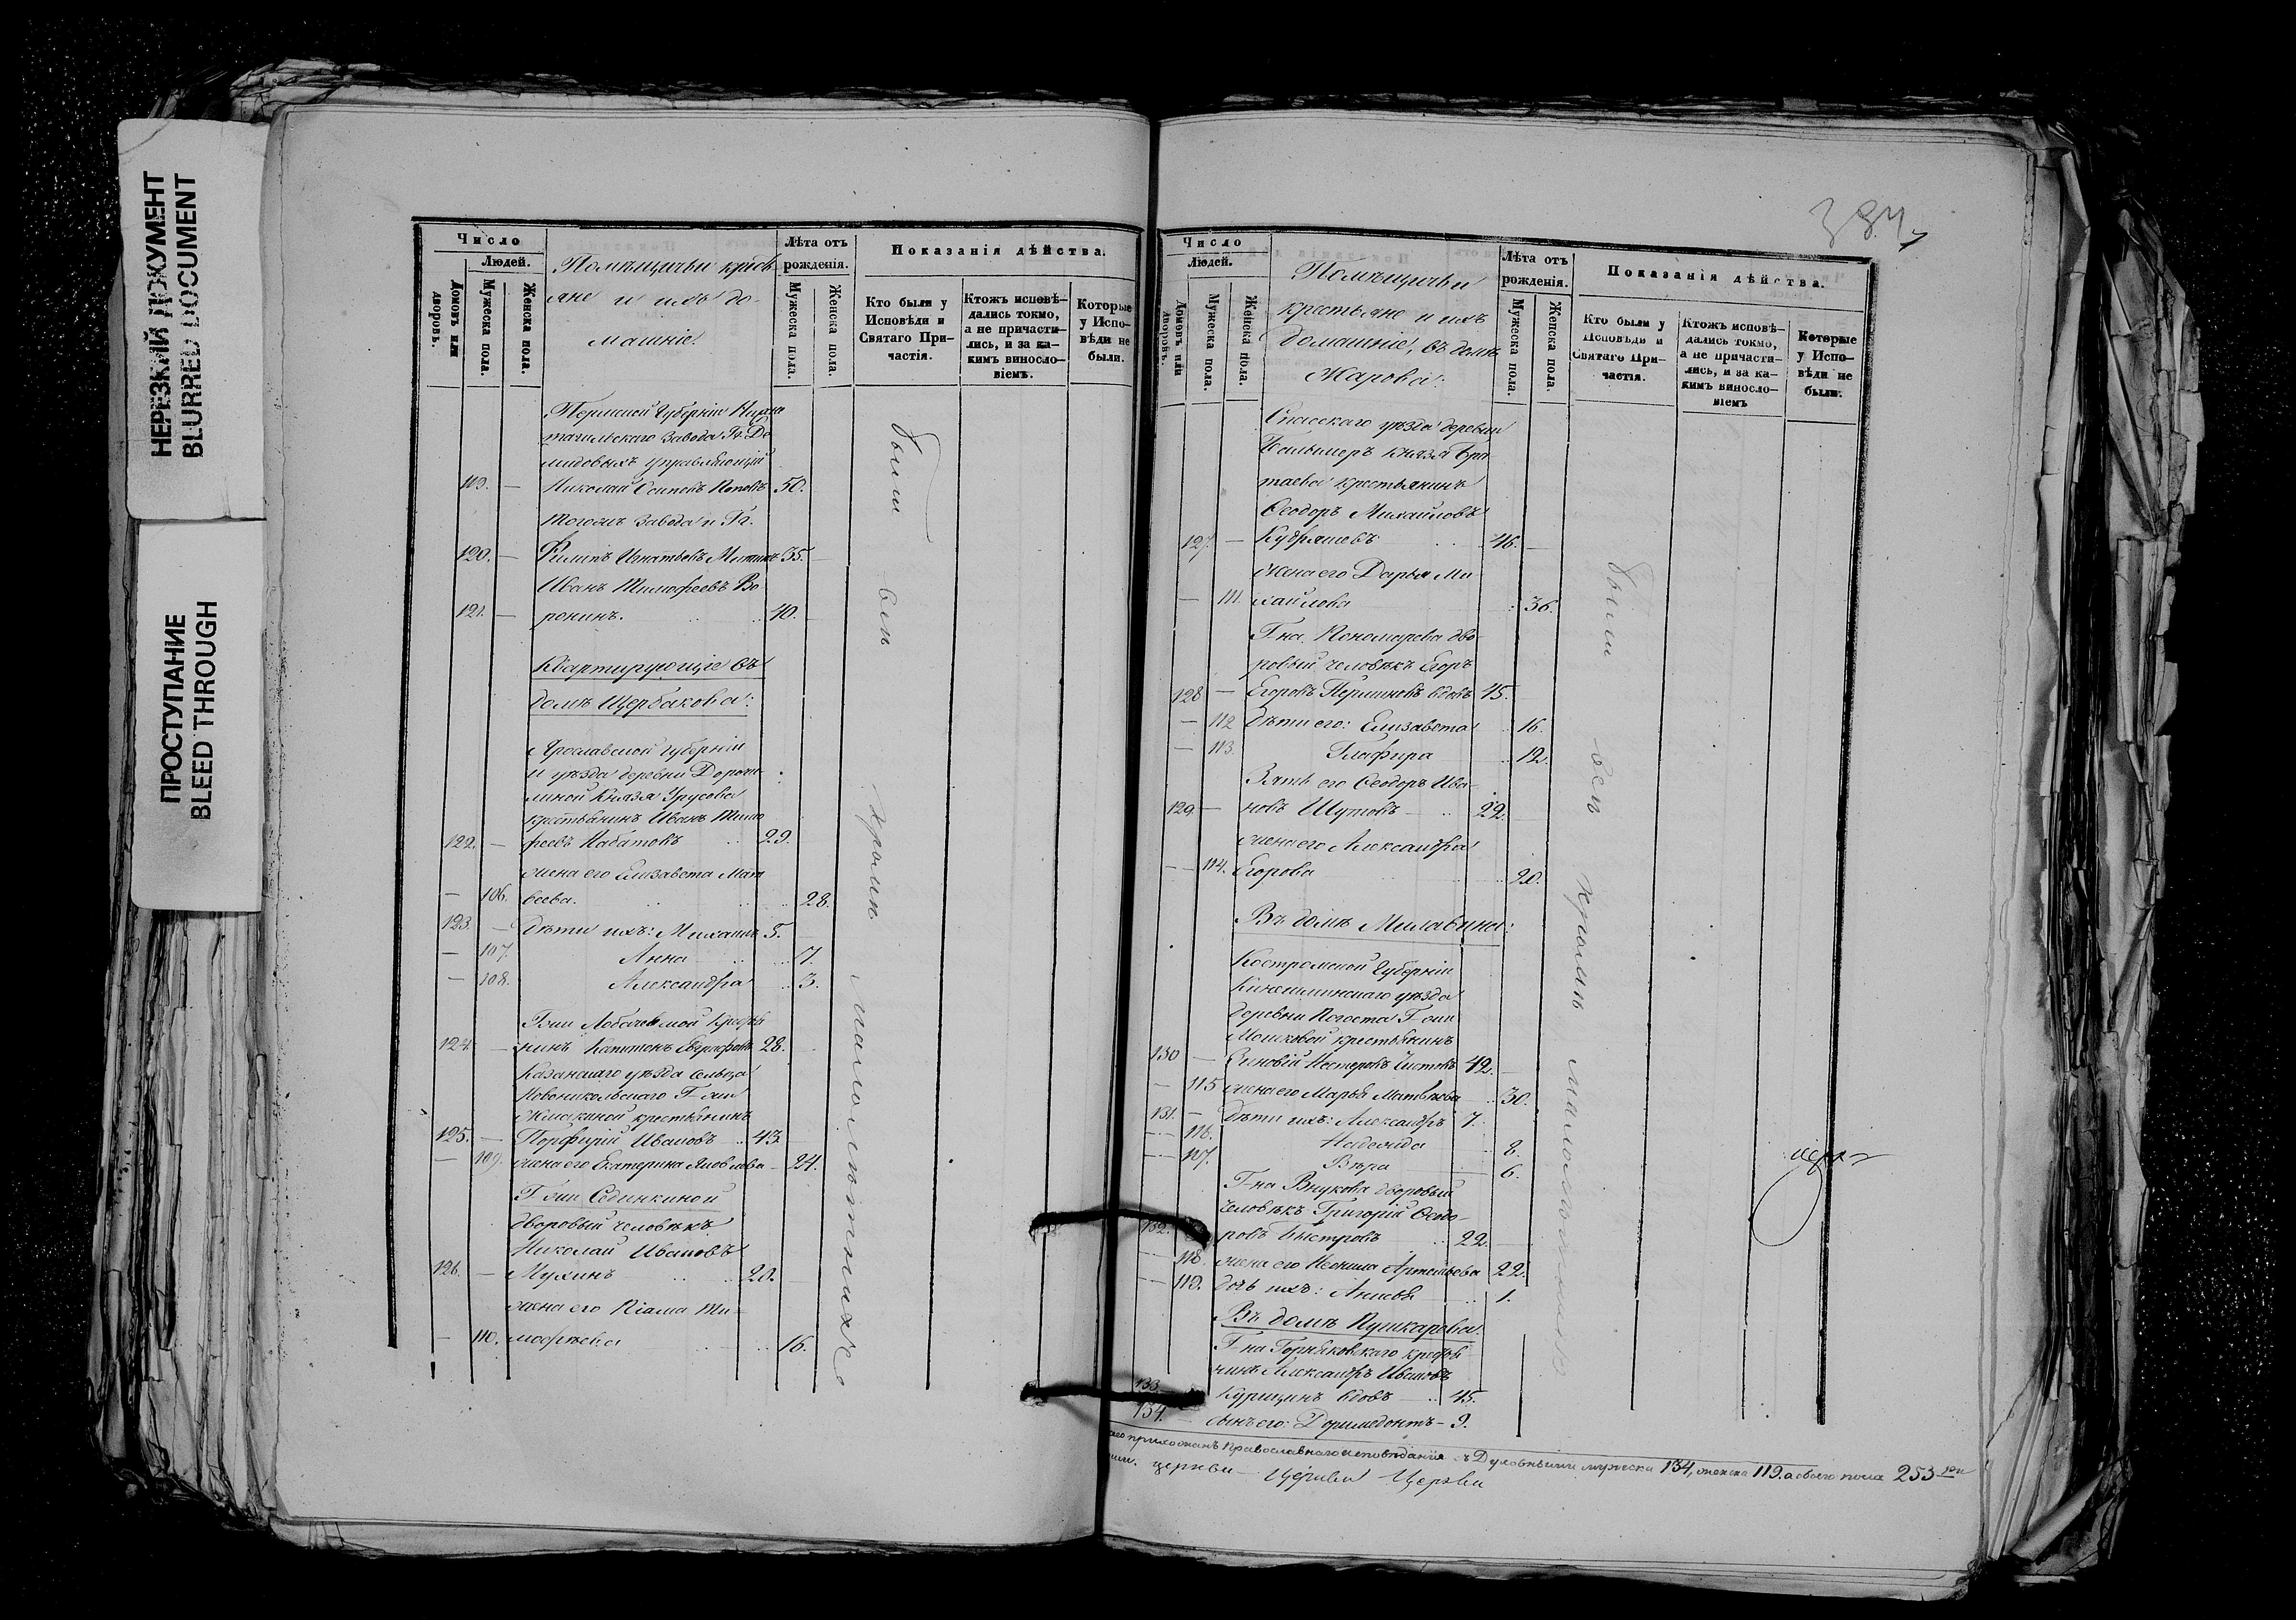 НЕРЕЗКИЙ ДОКУМЕНТ
BLURRED DOCUMENT
ПРОСТУПАНИЕ
BLEED THROUGH
Число
Людей.
Домовъ или дворовъ.
Мужеска пола.
Женска пола.
Помѣщичьи кресть-
яне и ихъ до-
машніе.
Лѣта отъ рожденія.
Мужеска пола.
Женска пола.
Показанія дѣйства.
Кто были у Исповѣди и Святаго Причастія.
Ктожъ исповѣ-
дались токмо,
а не причасти-
лись, и за ка-
кимъ виносло-
віемъ.
Которые
у Испо-
вѣди не
были.
Пермской Губерніи Нижне
тагильскаго завода Гг. Де
мидовыхъ управляющій
119. — Николай Осиповъ Поповъ 50.
тогожъ завода и Гг.
120. — Филипъ Игнатьевъ 35.
Иванъ Тимофеевъ Во
121. — ронинъ. 40.
Квартирующіе въ
домѣ Щербакова:
Ярославской губерніи
и уѣзда деревни
Князя Урусова
крестьянинъ Иванъ Тимо
122. — феевъ Набатовъ 29.
жена его Елизавета Мат
— 106. веева. 28.
123. — дѣти ихъ: Михаилъ 5.
— 107. Анна 7.
— 108. Александра 3.
Гжи Лобачевской
124. — нинъ Капитонъ 28.
Казанскаго уѣзда сельца
Новоникольскаго Г-жи
крестьянинъ
125. — Порфирій Ивановъ 43.
— 109. жена его Екатерина Яковлева 24.
Г-жи
дворовый человѣкъ
Николай Ивановъ
126. — Мухинъ 20.
жена его Ти-
— 110. мофѣева 16.
были всѣ кромѣ малолѣтнихъ
384
Число
Людей.
Домовъ или дворовъ.
Мужеска пола.
Женска пола.
Помѣщичьи
крестьяне и ихъ
домашніе, въ домѣ
Жарова:
Лѣта отъ
рожденія.
Мужеска пола.
Женска пола.
Показанія дѣйства.
Кто были у
Исповѣди и
Святаго При-
частія.
Ктожъ исповѣ-
дались токмо,
а не причасти-
лись, и за ка-
кимъ виносло-
віемъ
Которые
у Испо-
вѣди не
были.
Спасскаго уѣзда деревни
князя
таева крестьянинъ
Ѳеодоръ Михайловъ
127. — Кудряшовъ 46.
жена его Дарья Ми-
— 111. хайлова 36.
Г-на Пономарева дво-
ровый человѣкъ Егоръ
128 — Егоровъ вдовъ 45.
— 112 дѣти его: Елизавета 16.
— 113. Глафира 12.
Зять его Ѳеодоръ Ива-
129. — новъ Шутовъ 22.
жена его Александра
— 114. Егорова 20.
Въ домѣ Милавина:
Костромской Губерніи
Кинешминскаго уѣзда
деревни Погоста Г-жи
Мошковой крестьянинъ
130 — Зиновій Нестеровъ Чистовъ 42.
— 115 жена его Марья Матвѣева 30.
131. — дѣти ихъ: Александръ 7.
— 116. Надежда 8.
— 117. Вѣра 6.
Г-на Внукова дворовый
человѣкъ Григорій Ѳеодо-
132. ровъ Быстровъ 22.
— 118. жена его Артемьева 22.
— 119. дочь ихъ: 1.
Въ домѣ Пушкарева.
Г-на
нинъ Александръ Ивановъ
133 Курицынъ вдовъ 45.
134. — сынъ его: Доримедонтъ 9.
были всѣ кромѣ
прихожанъ Православнаго исповѣданія съ Духовными мужеска 134, женска 119. а обоего пола 253
церкви Церкви Церкви